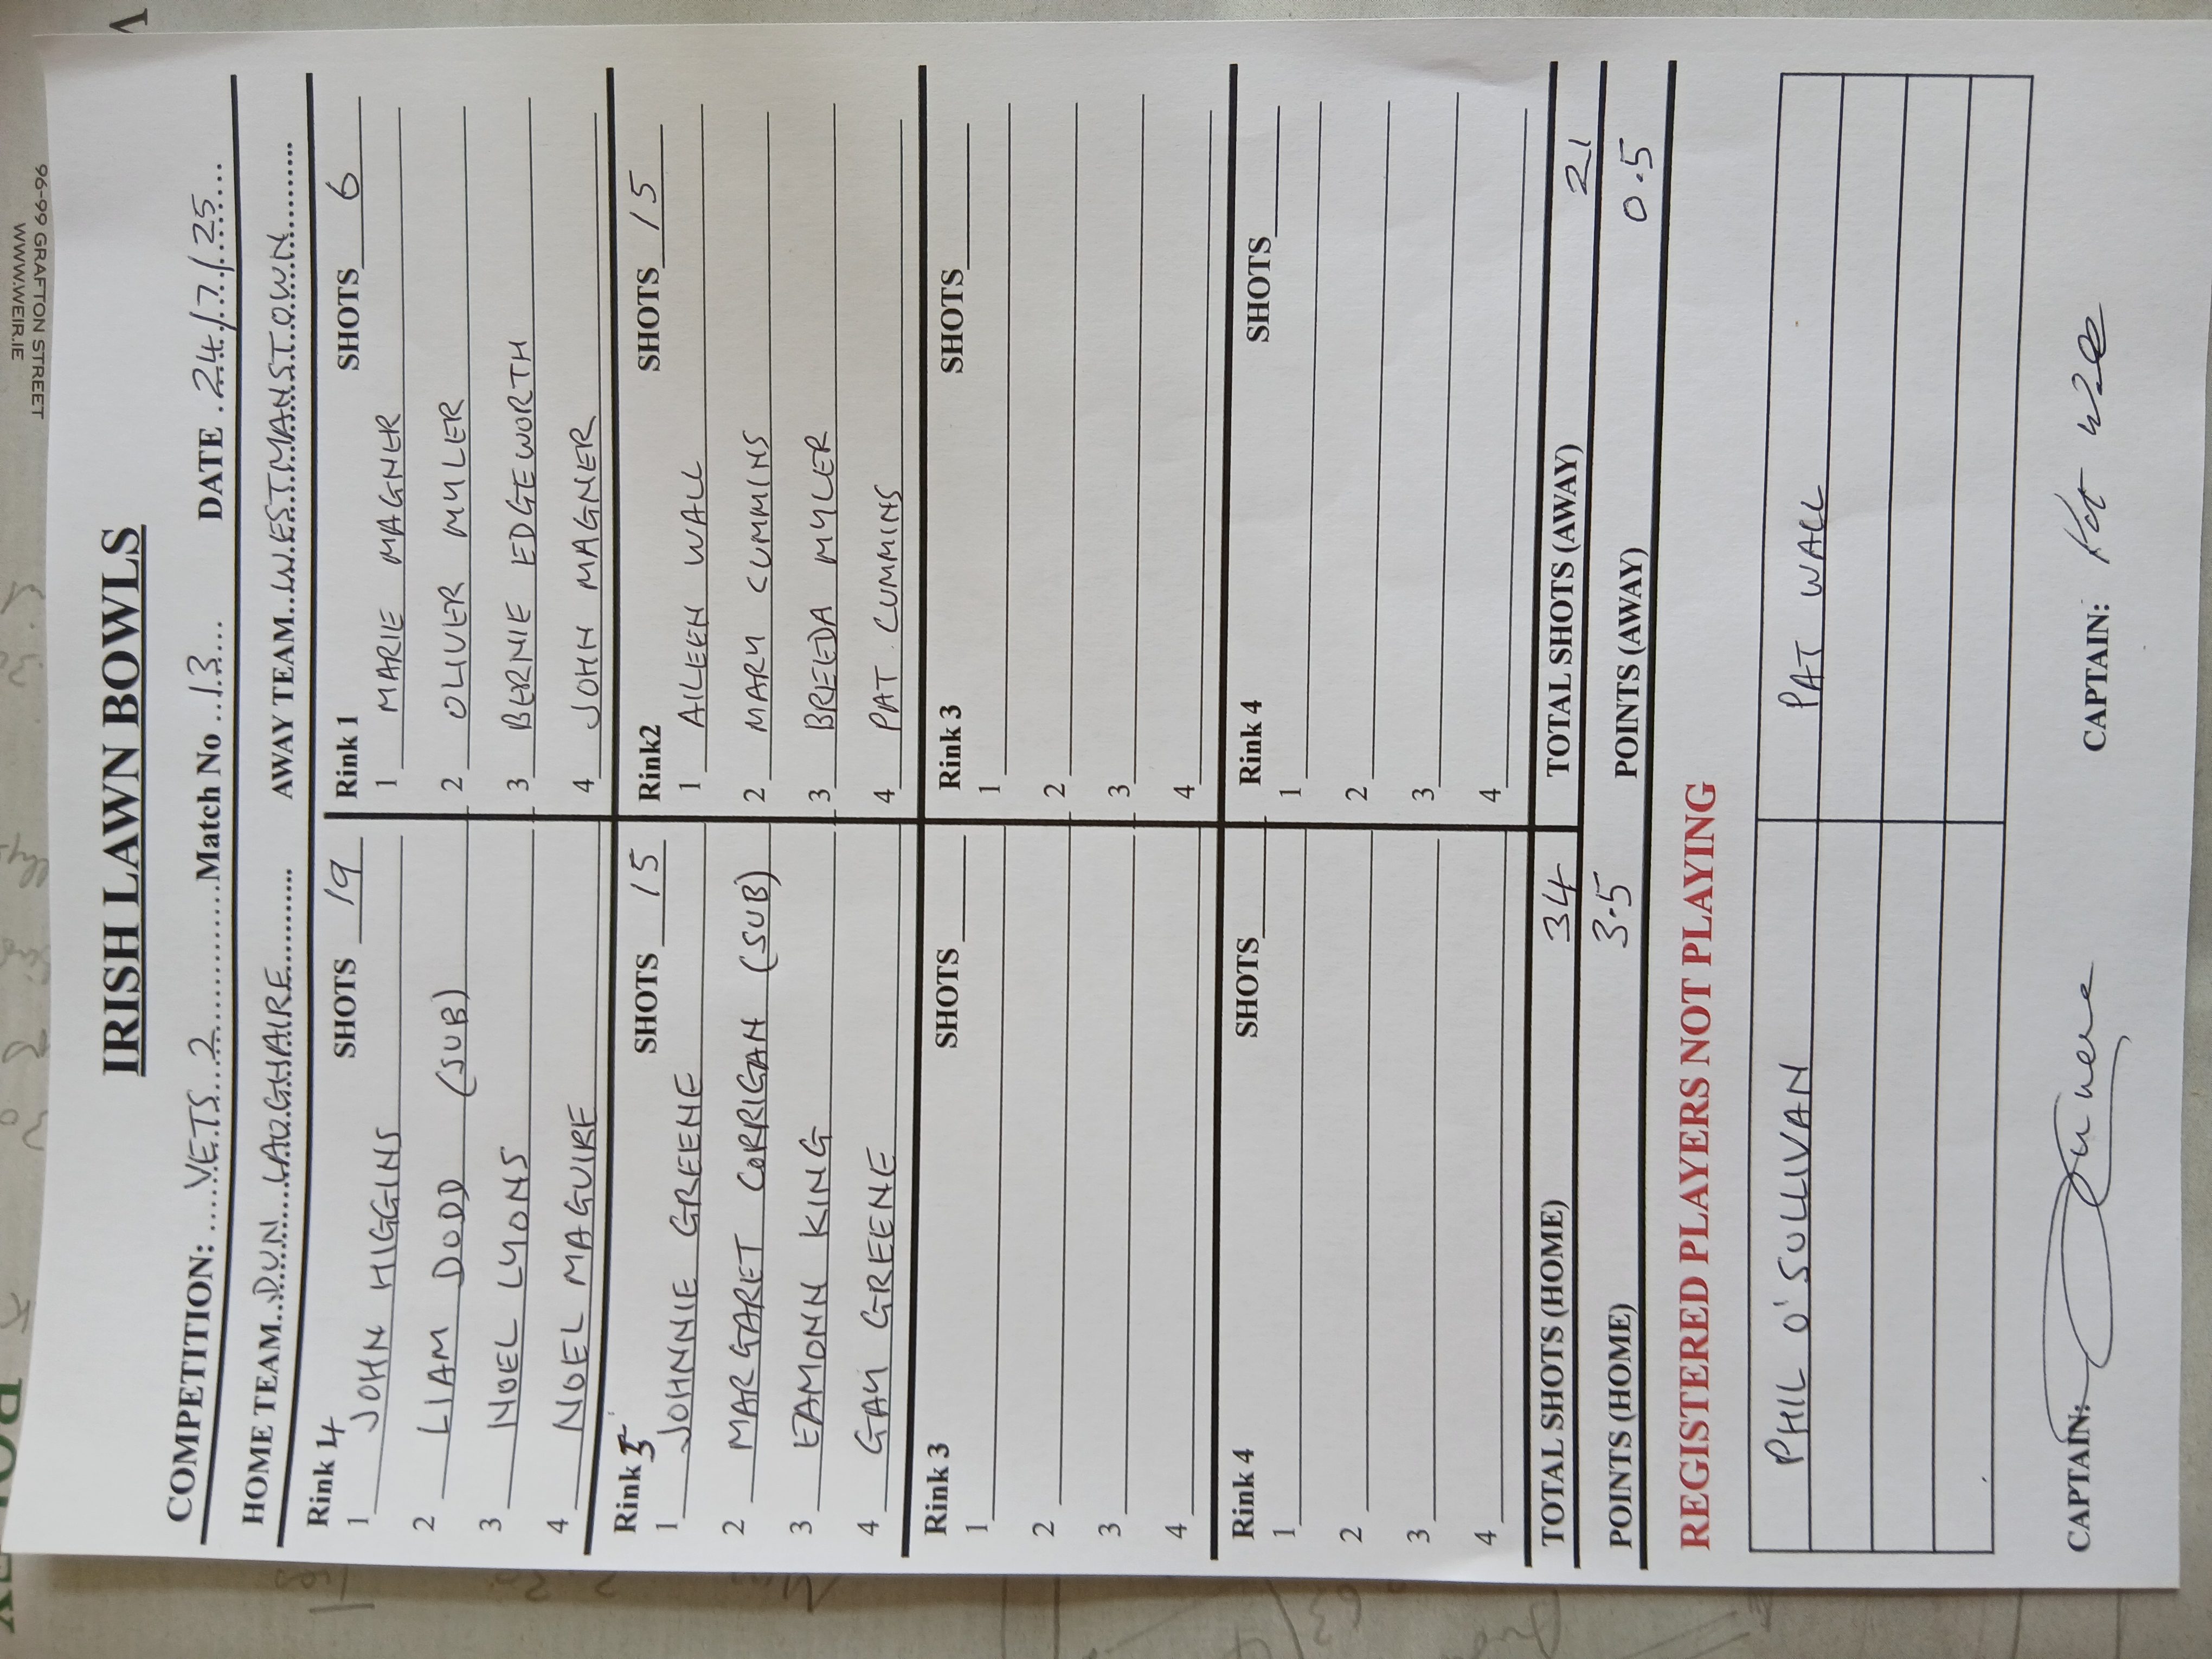 96-99 GRAFTON STREET
WWW.WEIR.IE
IRISH LAWN BOWLS
COMPETITION: VETS 2 Match No 13 DATE 24/7/25
HOME TEAM DUN LAOGHAIRE AWAY TEAM WESTMANSTOWN
Rink 4 SHOTS 19 Rink 1 SHOTS 6
1 JOHN HIGGINS 1 MARIE MAGNER
2 LIAM DODD (SUB) 2 OLIVER MYLER
3 NOEL LYONS 3 BERNIE EDGEWORTH
4 NOEL MAGUIRE 4 JOHN MAGNER
Rink 5 SHOTS 15 Rink2 SHOTS 15
1 JOHNNIE GREENE 1 AILEEN WALL
2 MARGARET CORRIGAN (SUB) 2 MARY CUMMINS
3 EAMONN KING 3 BREEDA MYLER
4 GAY GREENE 4 PAT CUMMINS
Rink 3 SHOTS Rink 3 SHOTS
1 1
2 2
3 3
4 4
Rink 4 SHOTS Rink 4 SHOTS
1 1
2 2
3 3
4 4
TOTAL SHOTS (HOME) 34 TOTAL SHOTS (AWAY) 21
POINTS (HOME) 3.5 POINTS (AWAY) 0.5
REGISTERED PLAYERS NOT PLAYING
PHIL O'SULLIVAN PAT WALL
CAPTAIN: CAPTAIN: Pat Wall